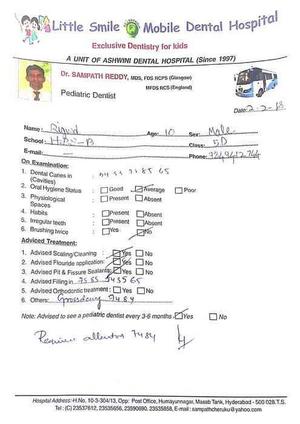 Little Smile Mobile Dental Hospital
Exclusive Dentistry for kids
A UNIT OF ASHWINI DENTAL HOSPITAL (Since 1997)
Dr. SAMPATH REDDY, MDS, FDS RCPS (Glasgow)
MFDS RCS (England)
Pediatric Dentist
Date: 2-2-18
Name: Age: 10 Sex: Male
School: Class: 5D
E-mail: Phone:
On Examination:
1. Dental Caries in : 85 65
(Cavities)
2. Oral Hygiene Status : Good Average Poor
3. Physiological : Present Absent
Spaces
4. Habits : Present Absent
5. Irregular teeth : Present Absent
6. Brushing twice : Yes No
Adviced Treatment:
1. Advised Scaling/Cleaning : Yes No
2. Advised Flouride application : Yes No
3. Advised Pit & Fissure Sealants : Yes No
4. Advised Filling in 75 85 65
5. Advised Orthodontic treatment : Yes No
6. Others: 7484
Note: Advised to see a pediatric dentist every 3-6 months Yes No
7484
Hospital Address: H.No, 10-3-304/13, Opp: Post Office, Humayunnagar, Masab Tank, Hyderabad - 500 028.T.S.
Tel : (C) 23537612, 23535656, 23590890, 23535858, E-mail : sampathcheruku@yahoo.com